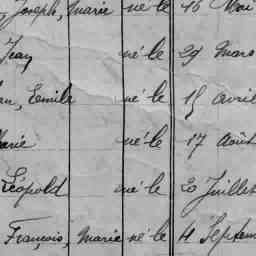 Joseph, Marie né le 16 Mai
Jean né le 29 Mars
Emile né le 15 avril
Marie né le 17 Août
Léopold né le 20 Juillet
François, Marie né le 4 Septem